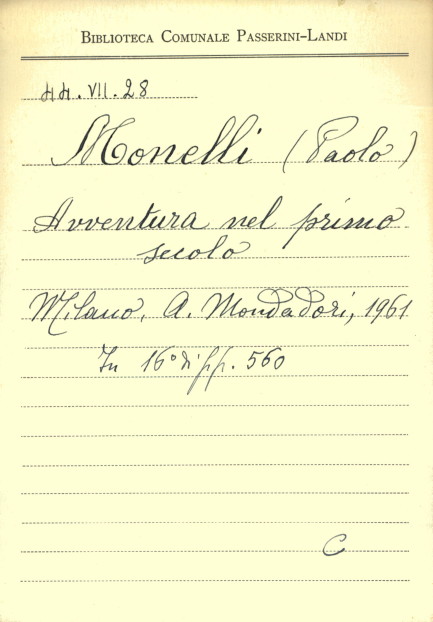 BIBLIOTECA COMUNALE PASSERINI-LANDI
44.VII.28
Monelli (Paolo)
Avventura nel primo
secolo
Milano, A. Mondadori, 1961
In 16° di pp. 560
C